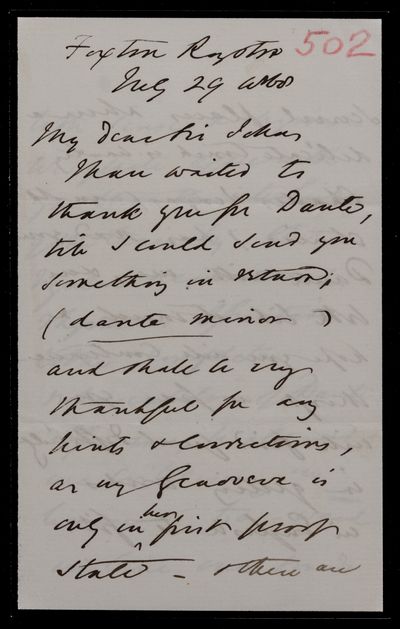 Foxton Royston 502
July 29 1868
My dear Sir John
I have waited to
thank you for Dante,
till I could send you
something in return;
(dante minor)
and shall be very
thankful for any
hints & corrections,
as my Genoveva is
only in her first proof
state – there are